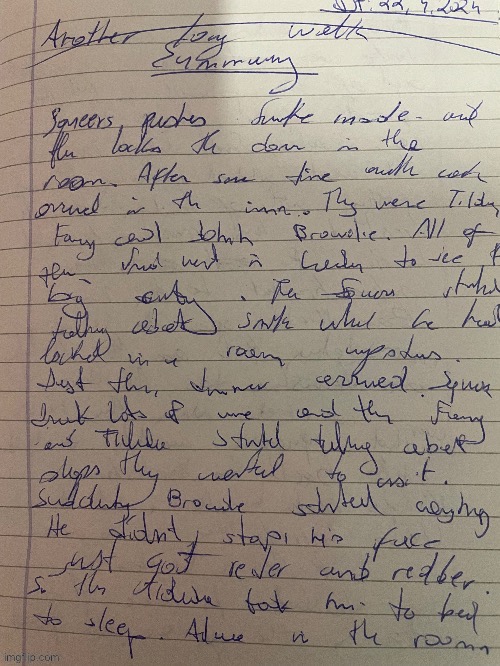 Dt. 22, 4, 2024
Another long walk
Summary
Squeers pushes Smike inside and
then locks the door in the
room. After some time
arrived in the inn. They were Tilda,
Fany and John Browdie. All of
then in London to see
big. The Squeers started
talking about Smike what he had
locked in a room upstairs.
Just then, dinner arrived. Squeers
Drank lots of wine and then Fanny
and Tilda started talking about
shops they wanted to visit.
Suddenly Browdie started
He didn't stop, his face
just got reder and redder.
So then Tilda took him to bed
to sleep. Alone in the room
imgflip.com